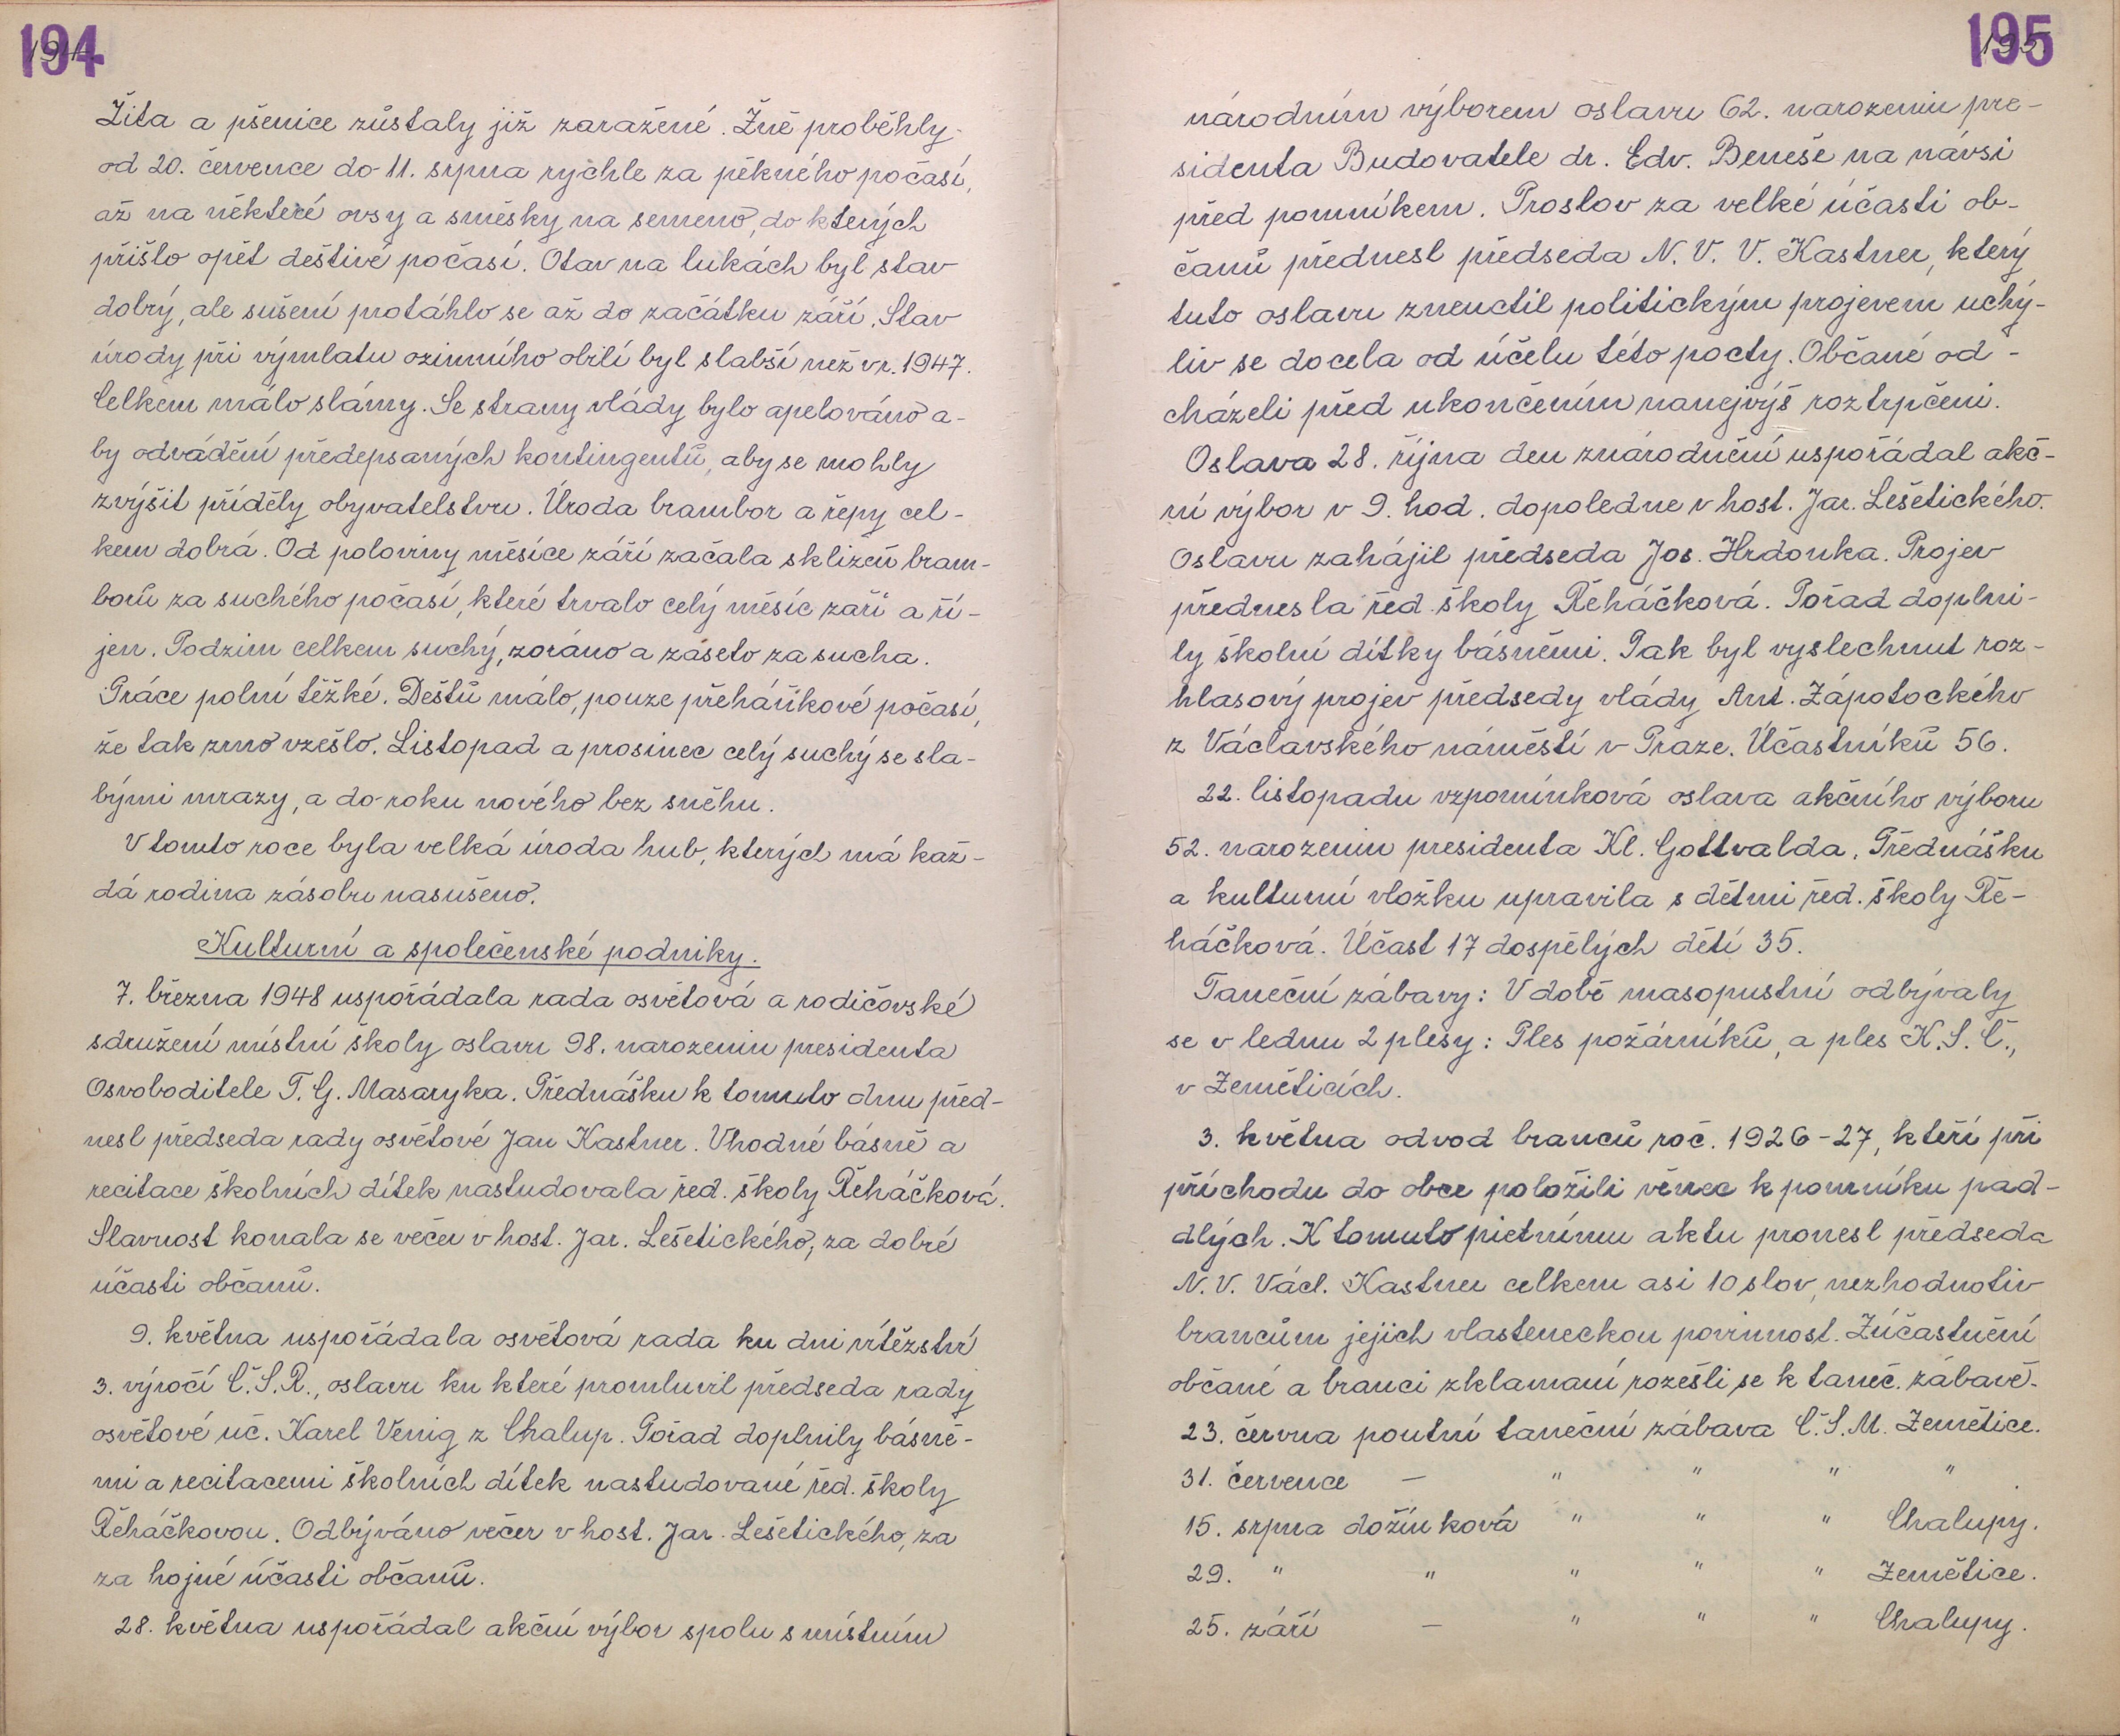 194
Žita a pšenice zůstaly již zaražené. Žně proběhly
od 20. července do 11. srpna rychle za pěkného počasí,
až na některé ovsy a směsky na semeno, do kterých
přišlo opět deštivé počasí. Otav na lukách byl stav
dobrý, ale sušení protáhlo se až do začátku září. Stav
úrody při výmlatu ozimního obilí byl slabší než v r. 1947.
Celkem málo slámy. Se strany vlády bylo apelováno a-
by odvádění předepsaných kontingentů, aby se mohly
zvýšit příděly obyvatelstvu. Úroda brambor a řepy cel-
kem dobrá. Od poloviny měsíce září začala sklizeň bram-
borů za suchého počasí, které trvalo celý měsíc září a ří-
jen. Podzim celkem suchý, zoráno a záseto za sucha.
Práce polní těžké. Deštů málo, pouze přeháňkové počasí,
že tak zrno vzešlo. Listopad a prosinec celý suchý se sla-
bými mrazy, a do roku nového bez sněhu.
V tomto roce byla velká úroda hub, kterých má kaž-
dá rodina zásobu nasušeno.
Kulturní a společenské podniky.
7. března 1948 uspořádala rada osvětová a rodičovské
sdružení místní školy oslavu 98. narozenin presidenta
Osvoboditele T. G. Masaryka. Přednášku k tomuto dnu před-
nesl předseda rady osvětové Jan Kastner. Vhodné básně a
recitace školních dítek nastudovala řed. školy Řeháčková.
Slavnost konala se večer v host. Jar. Lešetického, za dobré
účasti občanů.
9. května uspořádala osvětová rada ku dni vítězství
3. výročí Č.S.R., oslavu ku které promluvil předseda rady
osvětové uč. Karel Venig z Chalup. Pořad doplnily básně-
mi a recitacemi školních dítek nastudované řed. školy
Řeháčkovou. Odbýváno večer v host. Jar. Lešetického, za
za hojné účasti občanů.
28. května uspořádal akční výbor spolu s místním
195
národním výborem oslavu 62. narozenin pre-
sidenta Budovatele dr. Edv. Beneše na návsi
před pomníkem. Proslov za velké účasti ob-
čanů přednesl předseda N. V. V. Kastner, který
tuto oslavu zneuctil politickým projevem uchý-
liv se docela od účelu této pocty. Občané od-
cházeli před ukončením nanejvýš roztrpčeni.
Oslava 28. října den znárodnění uspořádal akč-
ní výbor v 9. hod. dopoledne v host. Jar. Lešetického.
Oslavu zahájil předseda Jos. Hrdonka. Projev
přednesla řed. školy Řeháčková. Pořad doplni-
ly školní dítky básněmi. Pak byl vyslechnut roz-
hlasový projev předsedy vlády Ant. Zápotockého
z Václavského náměstí v Praze. Účastníků 56.
22. listopadu vzpomínková oslava akčního výboru
52. narozenin presidenta Kl. Gottvalda. Přednášku
a kulturní vložku upravila s dětmi řed. školy Ře-
háčková. Účast 17 dospělých dětí 35.
Taneční zábavy: V době masopustní odbývaly
se v lednu 2 plesy: Ples požárníků, a ples K.S.Č.,
v Zemětících.
3. května odvod branců roč. 1926-27, kteří při
příchodu do obce položili věnec k pomníku pad-
dlých. K tomuto pietnímu aktu pronesl předseda
N. V. Václ. Kastner celkem asi 10 slov, nezhodnotiv
brancům jejich vlasteneckou povinnost. Zúčastnění
občané a branci zklamaní rozešli se k taneč. zábavě.
23. června poutní taneční zábava Č.S.M. Zemětice.
31. července — " " " "
15. srpna dožínková " " " Chalupy.
29. " " " " " Zemětice.
25. září — " " " Chalupy.